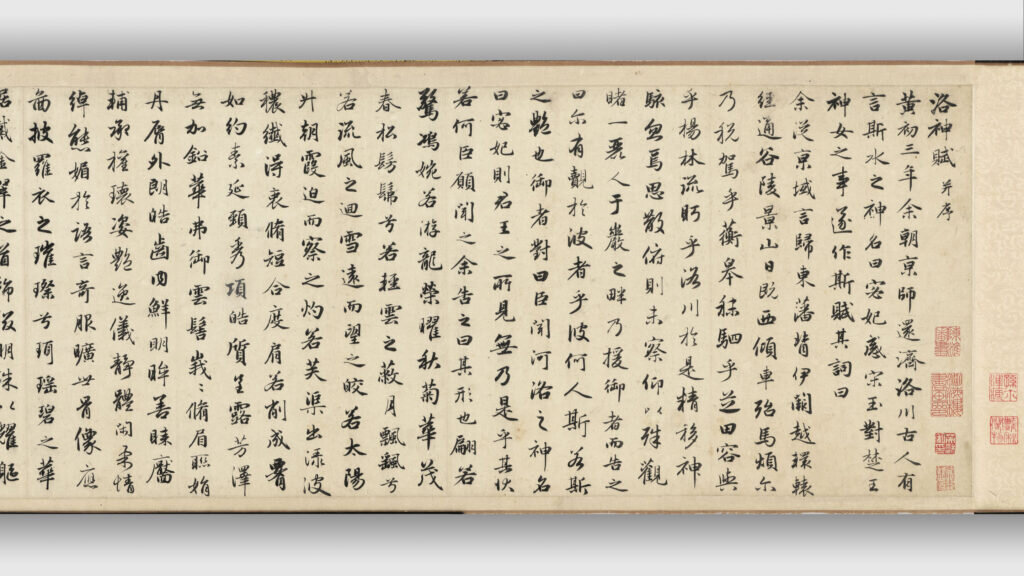 洛神賦 并序
黃初三年余朝京師還濟洛川古人有
言斯水之神名曰宓妃感宋玉對楚王
神女之事遂作斯賦其詞曰
余從京域言歸東藩背伊闕越轘轅
經通谷陵景山日既西傾車殆馬煩尔
乃稅駕乎蘅皋秣駟乎芝田容與
乎楊林流眄乎洛川於是精移神
駭忽焉思散俯則未察仰以殊觀
睹一麗人于巖之畔乃援御者而告之
曰尔有覿於波者乎波何人斯若斯
之艷也御者對曰臣聞河洛之神名
曰宓妃則君王之所見無乃是乎其狀
若何臣願聞之余告之曰其形也翩若
驚鴻婉若游龍榮曜秋菊華茂
春松髣髴兮若輕雲之蔽月飄颻兮
若流風之迴雪遠而望之皎若太陽
升朝霞迫而察之灼若芙蕖出淥波
穠纖得衷脩短合度肩若削成腰
如約素延頸秀項皓質呈露芳澤
無加鉛華弗御雲髻峩〻脩眉聯娟
丹脣外朗皓齒內鮮明眸善睞靨
輔承權瓌姿艷逸儀靜體閑柔情
綽態媚於語言奇服曠世骨像應
啚披羅衣之璀璨兮珥瑤碧之華
琚戴金翠之首飾綴明珠以耀軀